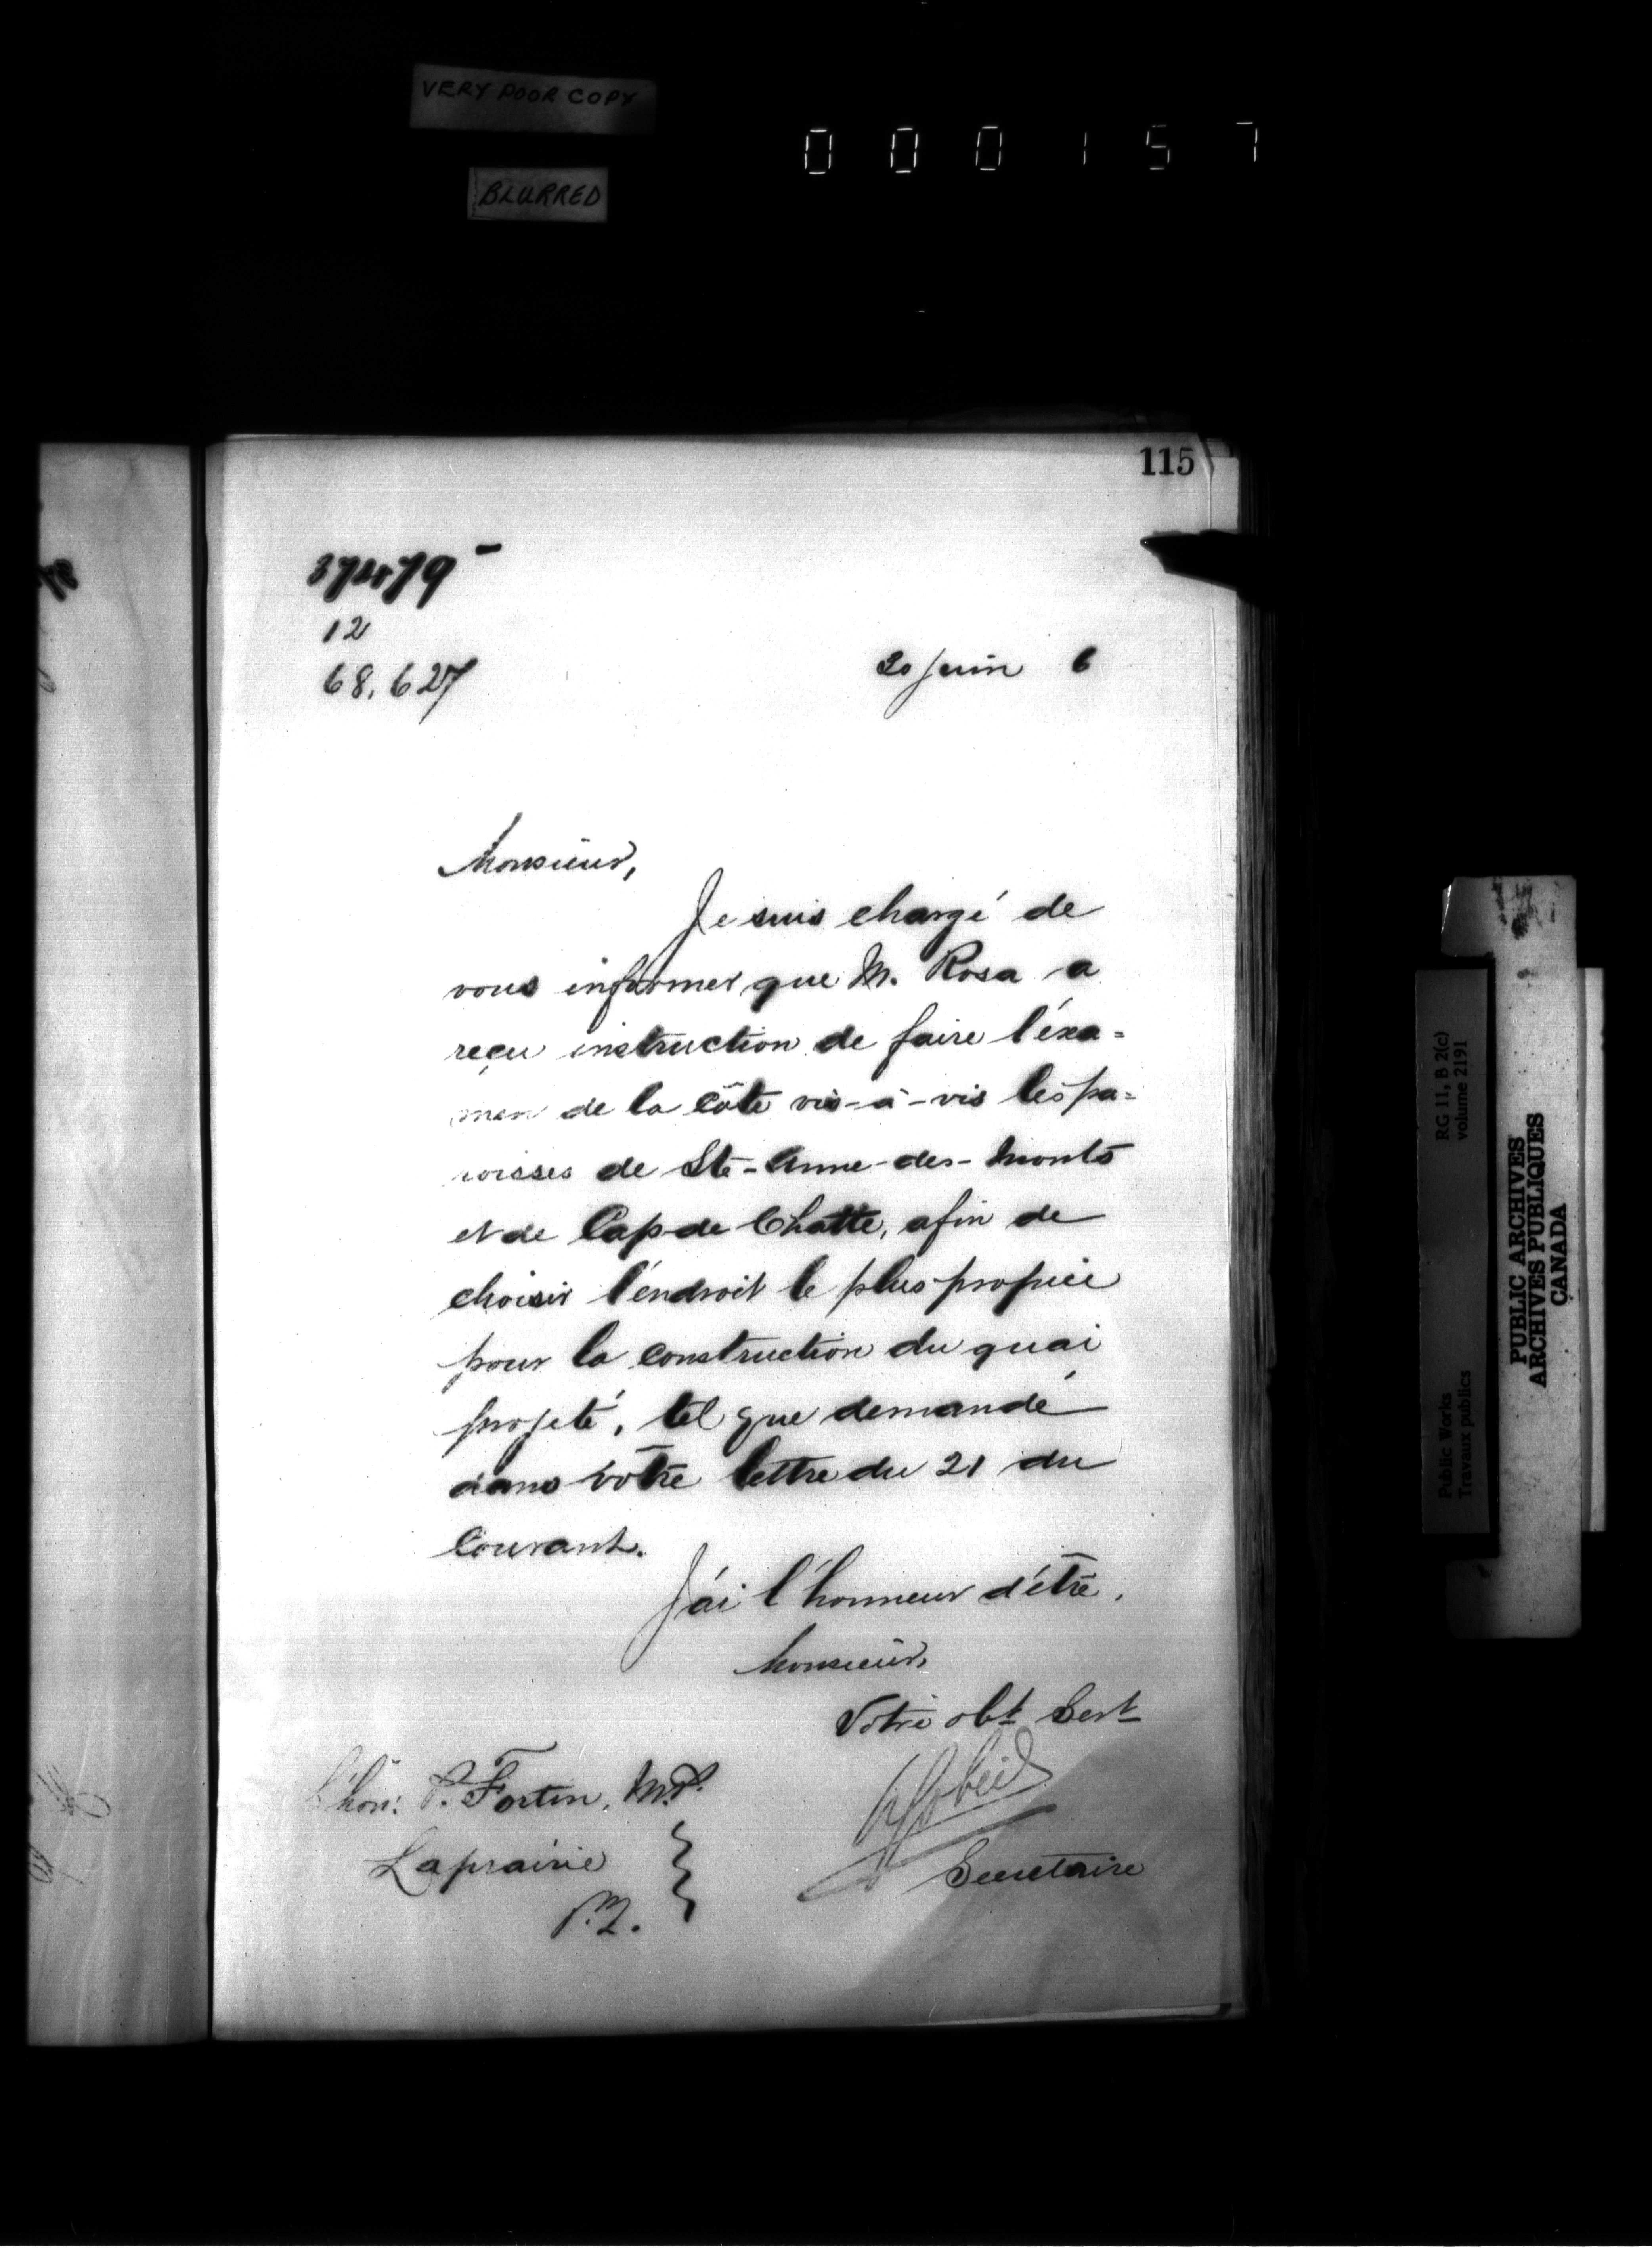 VERY POOR COPY
BLURRED
000157
115
12
68,627
20 juin 6
Monsieur,
Je suis chargé de
vous informer que M. Rosa a
reçu instruction de faire l'éxa=
men de la côte vis-à-vis les pa=
roisses de Ste-Anne-des-Monts
et de Cap de Chatte, afin de
choisir l'endroit le plus propice
pour la construction du quai
projeté, tel que demandé
dans votre lettre du 21 du
Courant.
J'ai l'honneur d'être,
Monsieur,
Votre obt Sert
L'hon: P. Fortin, M.P.
Laprairie
P.Q.
Secretaire
Public Works
Travaux publics
RG 11, B 2(c)
volume 2191
PUBLIC ARCHIVES
ARCHIVES PUBLIQUES
CANADA